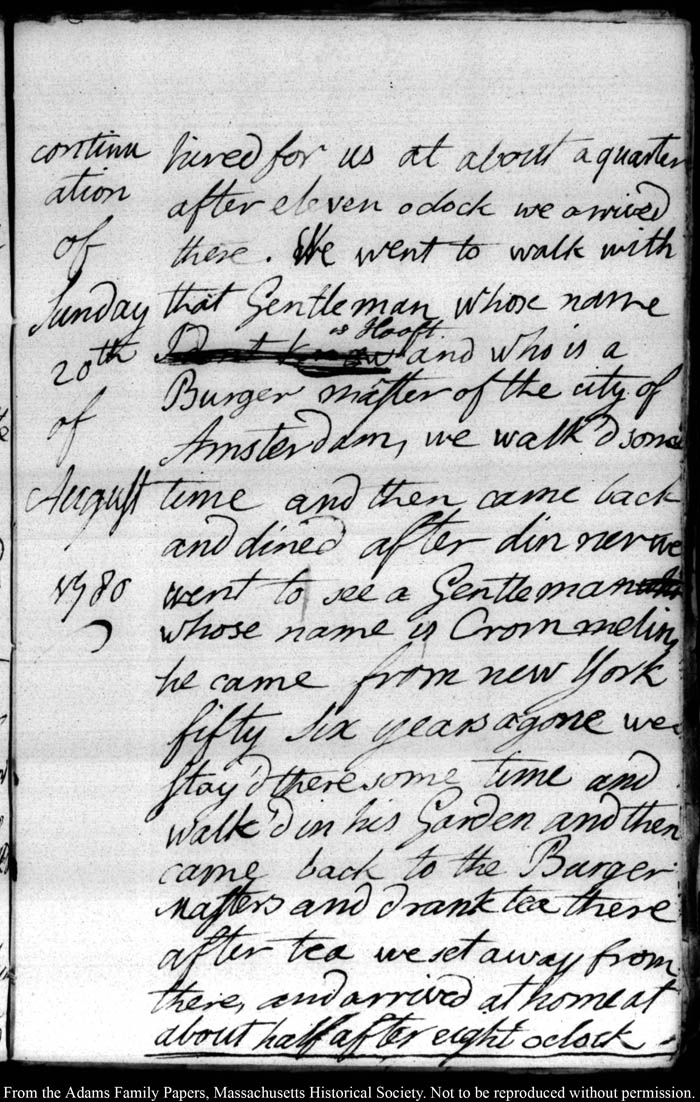 continu
ation
of
Sunday
20th
of
August
1780
hired for us at about a quarter
after eleven oclock we arrived
there. We went to walk with
that Gentleman whose name
is Hooft
I dont know and who is a
Burger master of the city of
Amsterdam, we walk'd some
time and then came back
and dined after dinner we
went to see a Gentleman
whose name is Crommelin,
he came from new York
fifty six years agone we
stay'd there some time and
walk'd in his Garden and then
came back to the Burger
Masters and drank tea there
after tea we set away from
there, and arrived at home at
about half after eight oclock.
From the Adams Family Papers, Massachusetts Historical Society. Not to be reproduced without permission.